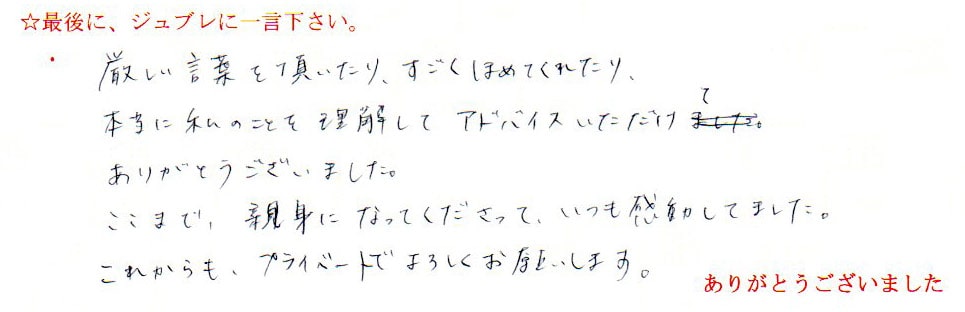 ☆最後に、ジュブレに一言下さい。
・厳しい言葉を頂いたり、すごくほめてくれたり、
本当に私のことを理解してアドバイスいただけて
ありがとうございました。
ここまで、親身になってくださって、いつも感動してました。
これからも、プライベートでよろしくお願いします。
ありがとうございました